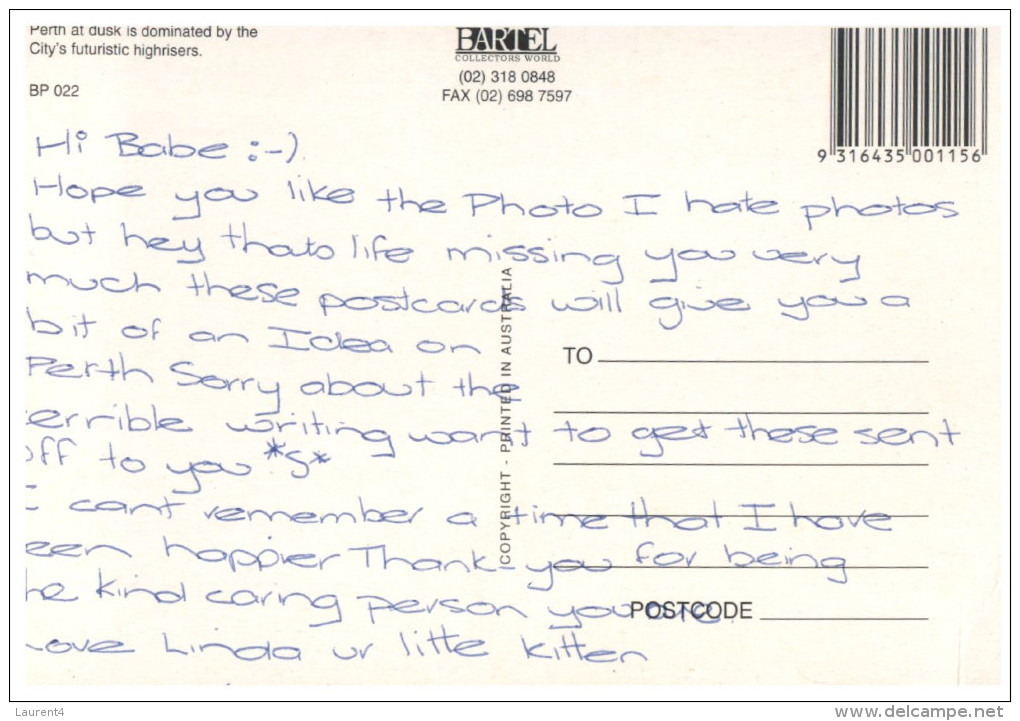 Perth at dusk is dominated by the
City's futuristic highrisers.
BP 022
BARTEL
COLLECTORS WORLD
(02) 318 0848
FAX (02) 698 7597
9 316435 001156
Hi Babe :-)
Hope you like the Photo I hate photos
but hey thats life missing you very
much these postcards will give you a
bit of an Idea on
Perth Sorry about the
errible writing want to get these sent
ff to you *S*
I cant remember a time that I have
een happier Thank-you for being
he kind caring person you are
Love Linda ur litte kitten
COPYRIGHT - PRINTED IN AUSTRALIA
TO
POSTCODE
Laurent4
www.delcampe.net